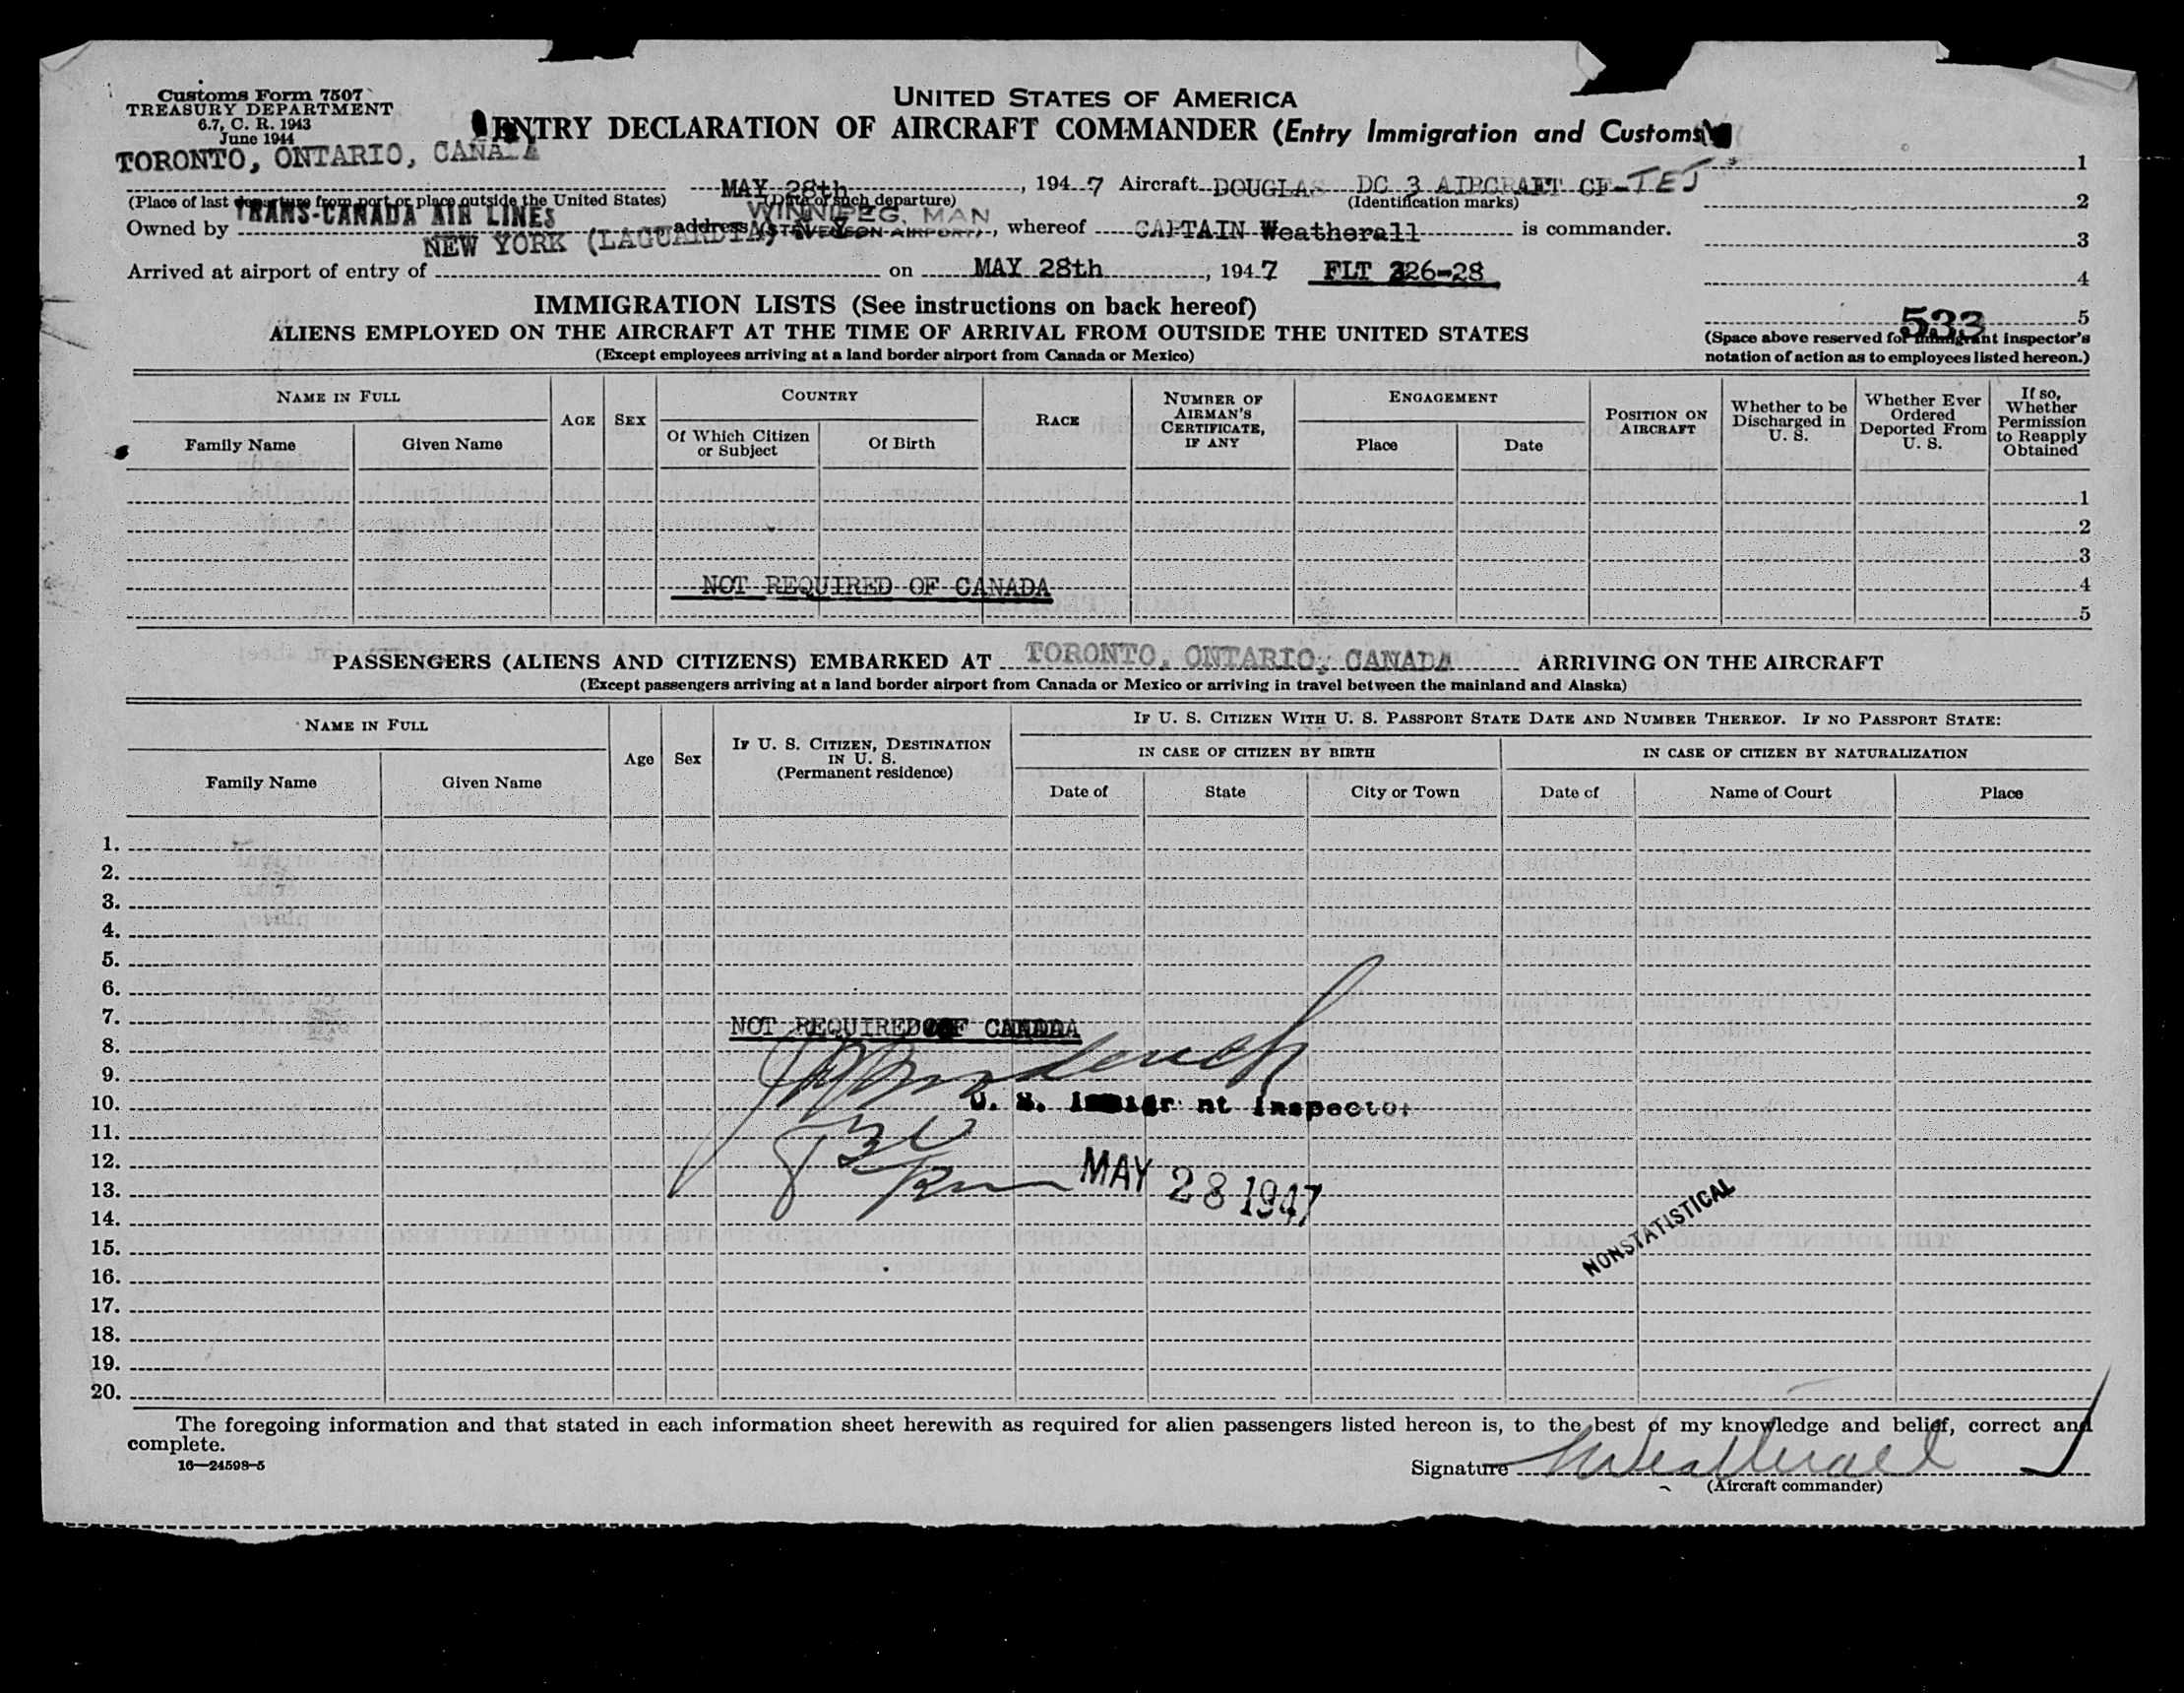 Customs Form 7507
TREASURY DEPARTMENT
6.7, C. R. 1943
June 1944
UNITED STATES OF AMERICA
ENTRY DECLARATION OF AIRCRAFT COMMANDER (Entry Immigration and Customs)
TORONTO, ONTARIO, CANADA
MAY 28th, 1947 Aircraft DOUGLAS DC 3 AIRCRAFT CF-TEJ
(Place of last departure from port or place outside the United States) (Date of such departure) (Identification marks)
TRANS-CANADA AIR LINES WINNIPEG, MAN
Owned by address (STEVENSON AIRPORT), whereof CAPTAIN Weatherall is commander.
NEW YORK (LAGUARDIA)
Arrived at airport of entry of on MAY 28th, 1947 FLT 226-28
1
2
3
4
5
533
(Space above reserved for immigrant inspector's
notation of action as to employees listed hereon.)
IMMIGRATION LISTS (See instructions on back hereof)
ALIENS EMPLOYED ON THE AIRCRAFT AT THE TIME OF ARRIVAL FROM OUTSIDE THE UNITED STATES
(Except employees arriving at a land border airport from Canada or Mexico)
NAME IN FULL
Family Name
Given Name
AGE
SEX
COUNTRY
Of Which Citizen
or Subject
Of Birth
RACE
NUMBER OF
AIRMAN'S
CERTIFICATE,
IF ANY
ENGAGEMENT
Place
Date
POSITION ON
AIRCRAFT
Whether to be
Discharged in
U. S.
Whether Ever
Ordered
Deported From
U. S.
If so,
Whether
Permission
to Reapply
Obtained
1
2
3
NOT REQUIRED OF CANADA 4
5
PASSENGERS (ALIENS AND CITIZENS) EMBARKED AT TORONTO, ONTARIO, CANADA ARRIVING ON THE AIRCRAFT
(Except passengers arriving at a land border airport from Canada or Mexico or arriving in travel between the mainland and Alaska)
NAME IN FULL
Family Name
Given Name
Age
Sex
IF U. S. CITIZEN, DESTINATION
IN U. S.
(Permanent residence)
IF U. S. CITIZEN WITH U. S. PASSPORT STATE DATE AND NUMBER THEREOF. IF NO PASSPORT STATE:
IN CASE OF CITIZEN BY BIRTH
Date of
State
City or Town
IN CASE OF CITIZEN BY NATURALIZATION
Date of
Name of Court
Place
1.
2.
3.
4.
5.
6.
7. NOT REQUIRED OF CANADA
8.
9.
10. U. S. Immigrant Inspector
11.
12.
13. MAY 28 1947
14.
NONSTATISTICAL
15.
16.
17.
18.
19.
20.
The foregoing information and that stated in each information sheet herewith as required for alien passengers listed hereon is, to the best of my knowledge and belief, correct and
complete.
16—24598-5
Signature Weatherall
(Aircraft commander)